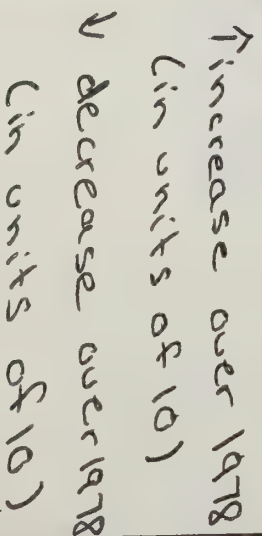 ↑ increase over 1978
(in units of 10)
↓ decrease over 1978
(in units of 10)